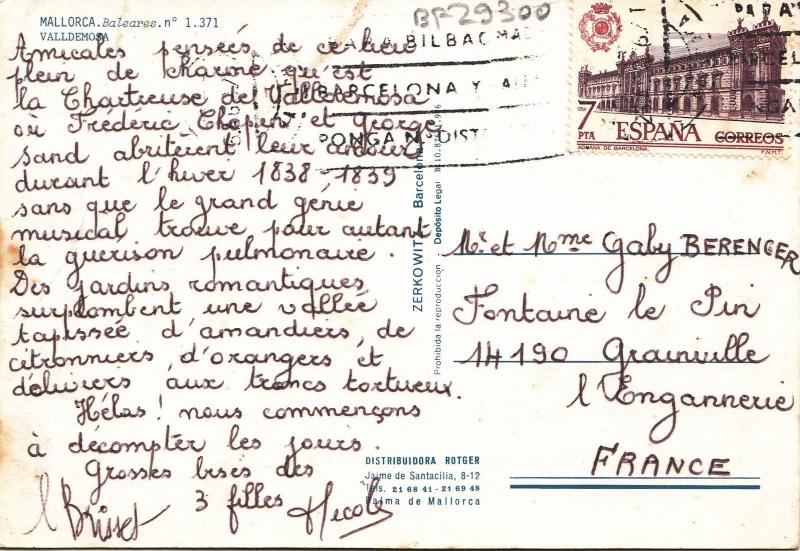 MALLORCA. Baleares. nº 1.371
VALLDEMOSA
BF29300
Amicales pensées de ce lieu
plein de charme qu'est
la Chartreuse de Valldemosa
où Fréderic Chopin et George
Sand abritèrent leur amour
durant l'hiver 1838-1839
sans que le grand génie
musical trouve pour autant
la guérison pulmonaire.
Des jardins romantiques
surplombent une vallée
tapissée d'amandiers, de
citronniers, d'orangers et
d'oliviers aux troncs tortueux.
Hélas! nous commençons
à décompter les jours.
Grosses bises des
3 filles
BILBAO
BARCELONA Y
PONGA Nº DIST
7
PTA
ESPAÑA
CORREOS
ADUANA DE BARCELONA.
F.N.M.T.
ZERKOWITZ Barcelona
Prohibida la reproducción - Depósito Legal
Mr et Mme Gaby BERENGER
Fontaine le Pin
14190 Grainville
l'Engannerie
FRANCE
DISTRIBUIDORA ROTGER
Jaime de Santacilia, 8-12
Tels. 21 68 41 - 21 69 48
Palma de Mallorca